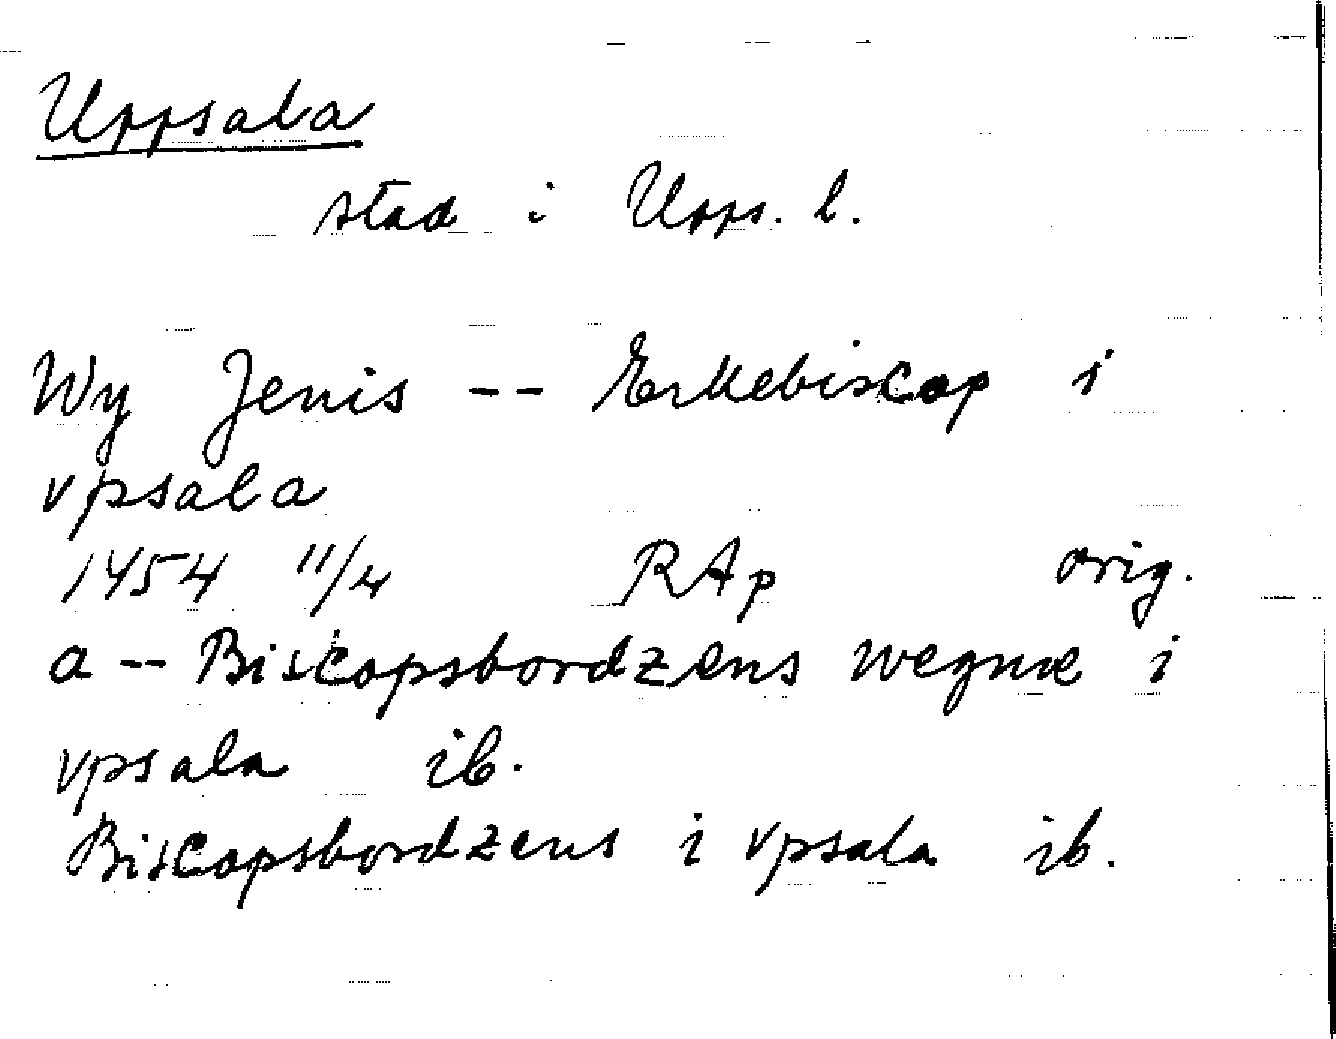 Uppsala
stad i Upps. l.
Wy Jenis -- Erkebiscop i
vpsala
1454 11/4 RAp orig.
a -- Biscopsbordzens wegnæ i
vpsala ib.
Biscopsbordzens i vpsala ib.